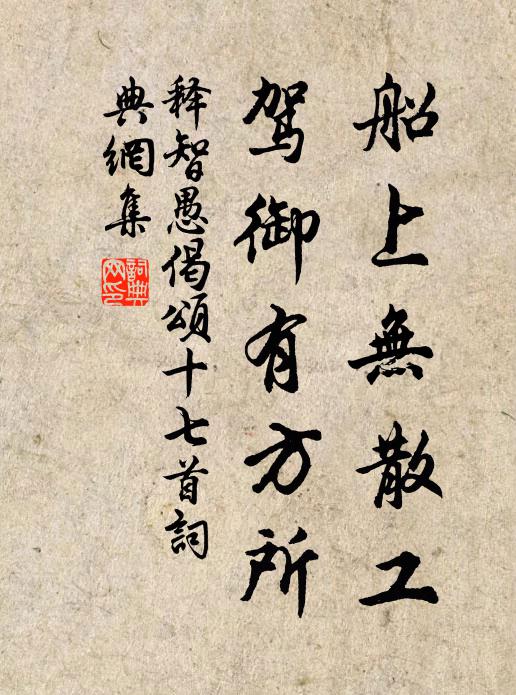 船上無散工
駕御有方所
释智愚偈頌十七首詞
典網集
詞典
网印